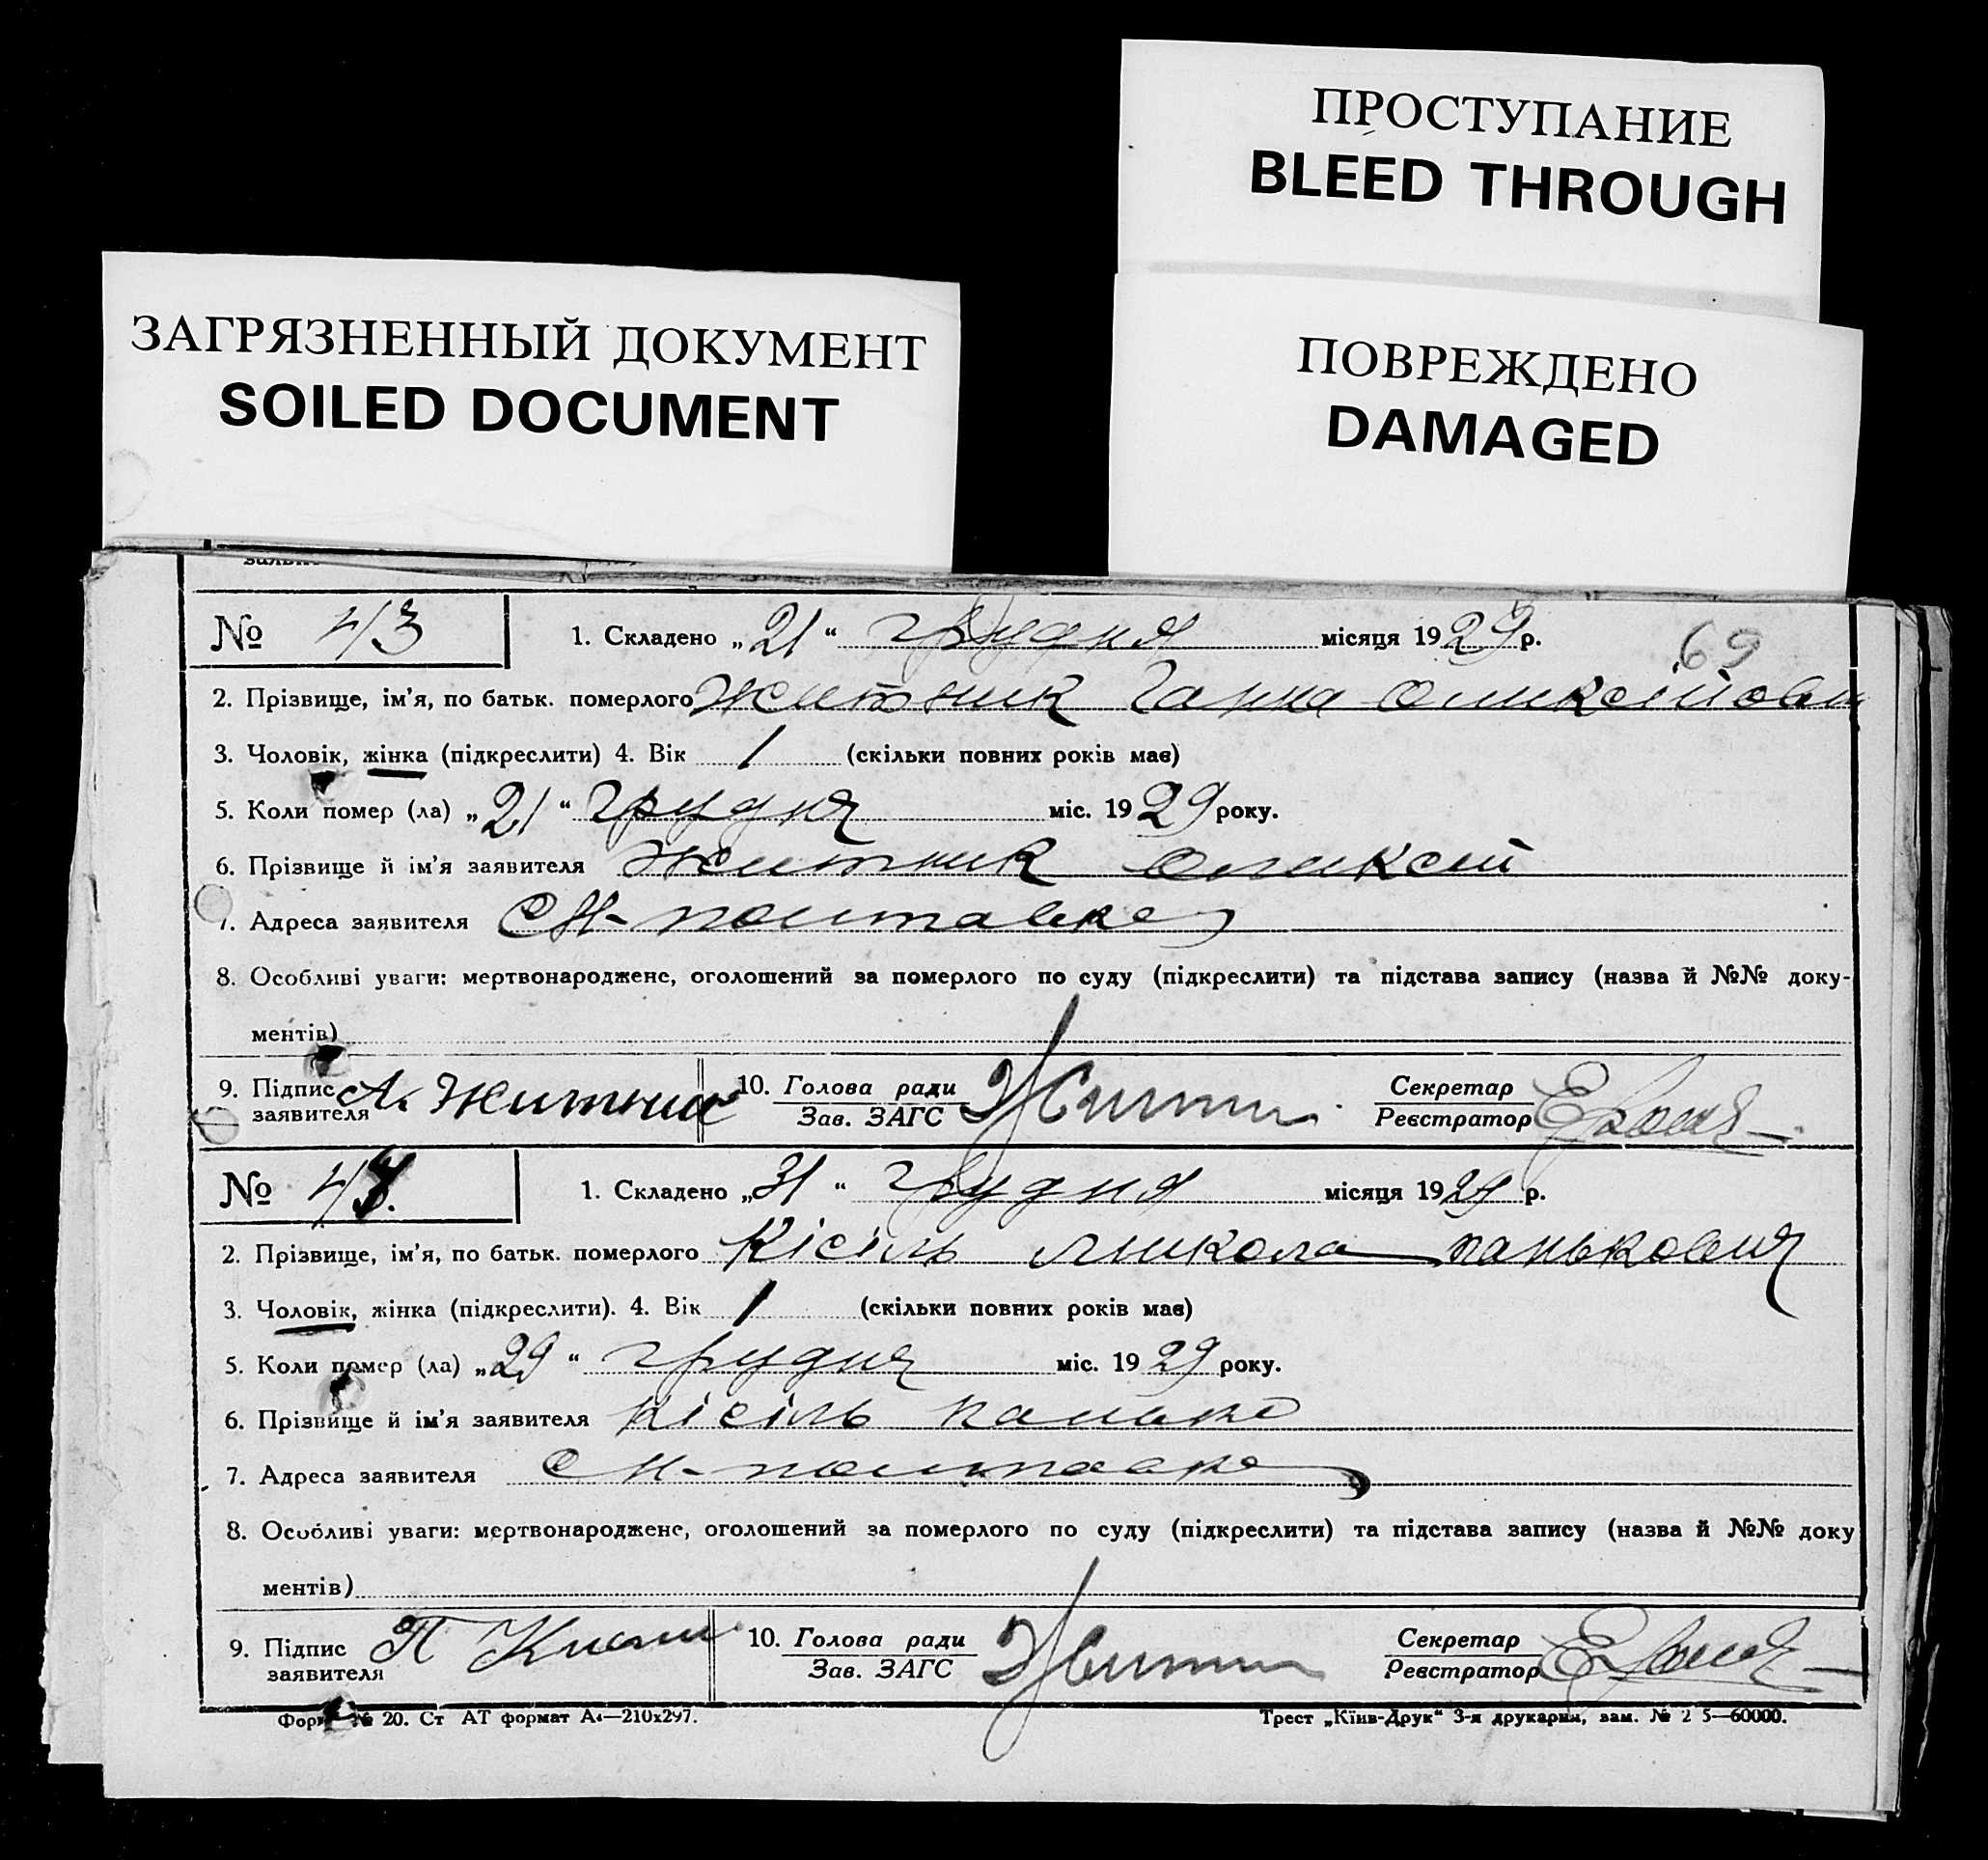 ПРОСТУПАНИЕ
BLEED THROUGH
ЗАГРЯЗНЕННЫЙ ДОКУМЕНТ
SOILED DOCUMENT
ПОВРЕЖДЕНО
DAMAGED
№ 43 1. Складено „21“ грудня місяця 1929 р.
69
2. Прізвище, ім'я, по батьк. померлого Житник Ганна Олексійовн
3. Чоловік, жінка (підкреслити) 4. Вік 1 (скільки повних років має)
5. Коли помер (ла) „21“ грудня міс. 1929 року.
6. Прізвище й ім'я заявителя Житник Олексій
7. Адреса заявителя М-Полтавка
8. Особливі уваги: мертвонароджене, оголошений за померлого по суду (підкреслити) та підстава запису (назва й №№ доку-
ментів)
9. Підпис заявителя А. Житник 10. Голова ради Зав. ЗАГС Секретар Реєстратор
№ 1. Складено „31“ грудня місяця 1929 р.
2. Прізвище, ім'я, по батьк. померлого Кісіль Микола Панькович
3. Чоловік, жінка (підкреслити). 4. Вік 1 (скільки повних років має)
5. Коли помер (ла) „29“ грудня міс. 1929 року.
6. Прізвище й ім'я заявителя Кісіль Панько
7. Адреса заявителя М-Полтавка
8. Особливі уваги: мертвонароджене, оголошений за померлого по суду (підкреслити) та підстава запису (назва й №№ доку
ментів)
9. Підпис заявителя П 10. Голова ради Зав. ЗАГС Секретар Реєстратор
Форм № 20. Ст АТ формат А4—210х297. Трест „Київ-Друк“ 3-я друкарня, зам. № 2 5—60000.